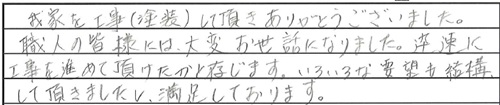 我家を工事(塗装)して頂きありがとうございました。
職人の皆様には、大変お世話になりました。迅速に
工事を進めて頂けたかと存じます。いろいろな要望も結構
して頂きましたし、満足しております。